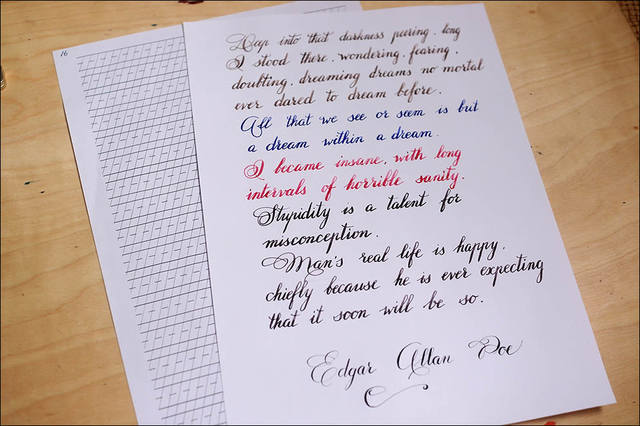 16
Deep into that darkness peering, long
I stood there, wondering, fearing,
doubting, dreaming dreams no mortal
ever dared to dream before.
All that we see or seem is but
a dream within a dream.
I became insane, with long
intervals of horrible sanity.
Stupidity is a talent for
misconception.
Man's real life is happy,
chiefly because he is ever expecting
that it soon will be so.
Edgar Allan Poe